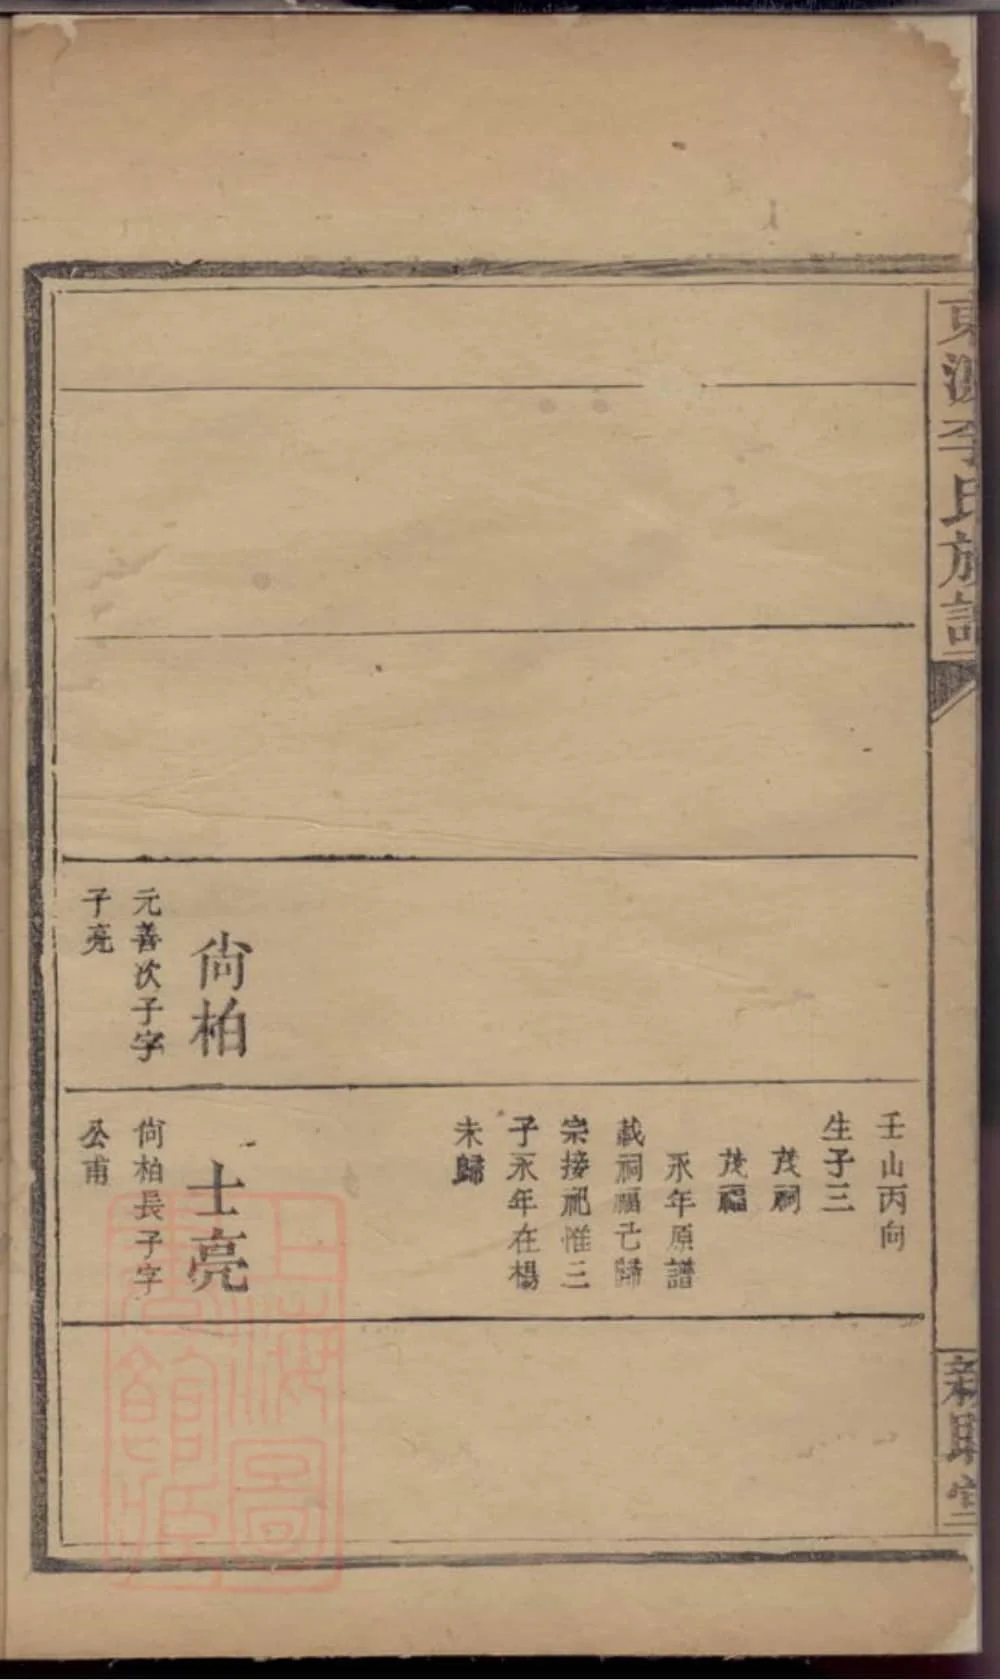 東源李氏族譜
尙柏
元善次子字
子亮
壬山丙向
生子三
茂祠
茂福
永年原譜
載祠福已歸
宗接祀惟三
子永年在楊
未歸
士亮
尙柏長子字
公甫
上海圖
書館藏